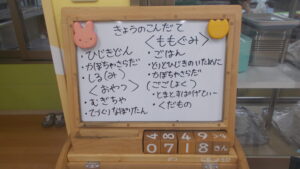 きょうのこんだて
・ひじきどん
・かぼちゃさらだ
・しる(み)
〈おやつ〉
・むぎちゃ
・てづくりなぽりたん
〈ももぐみ〉
・ごはん
・とりとひじきのいために
・かぼちゃさらだ
(ごごしょく)
・くだもの
849
0718